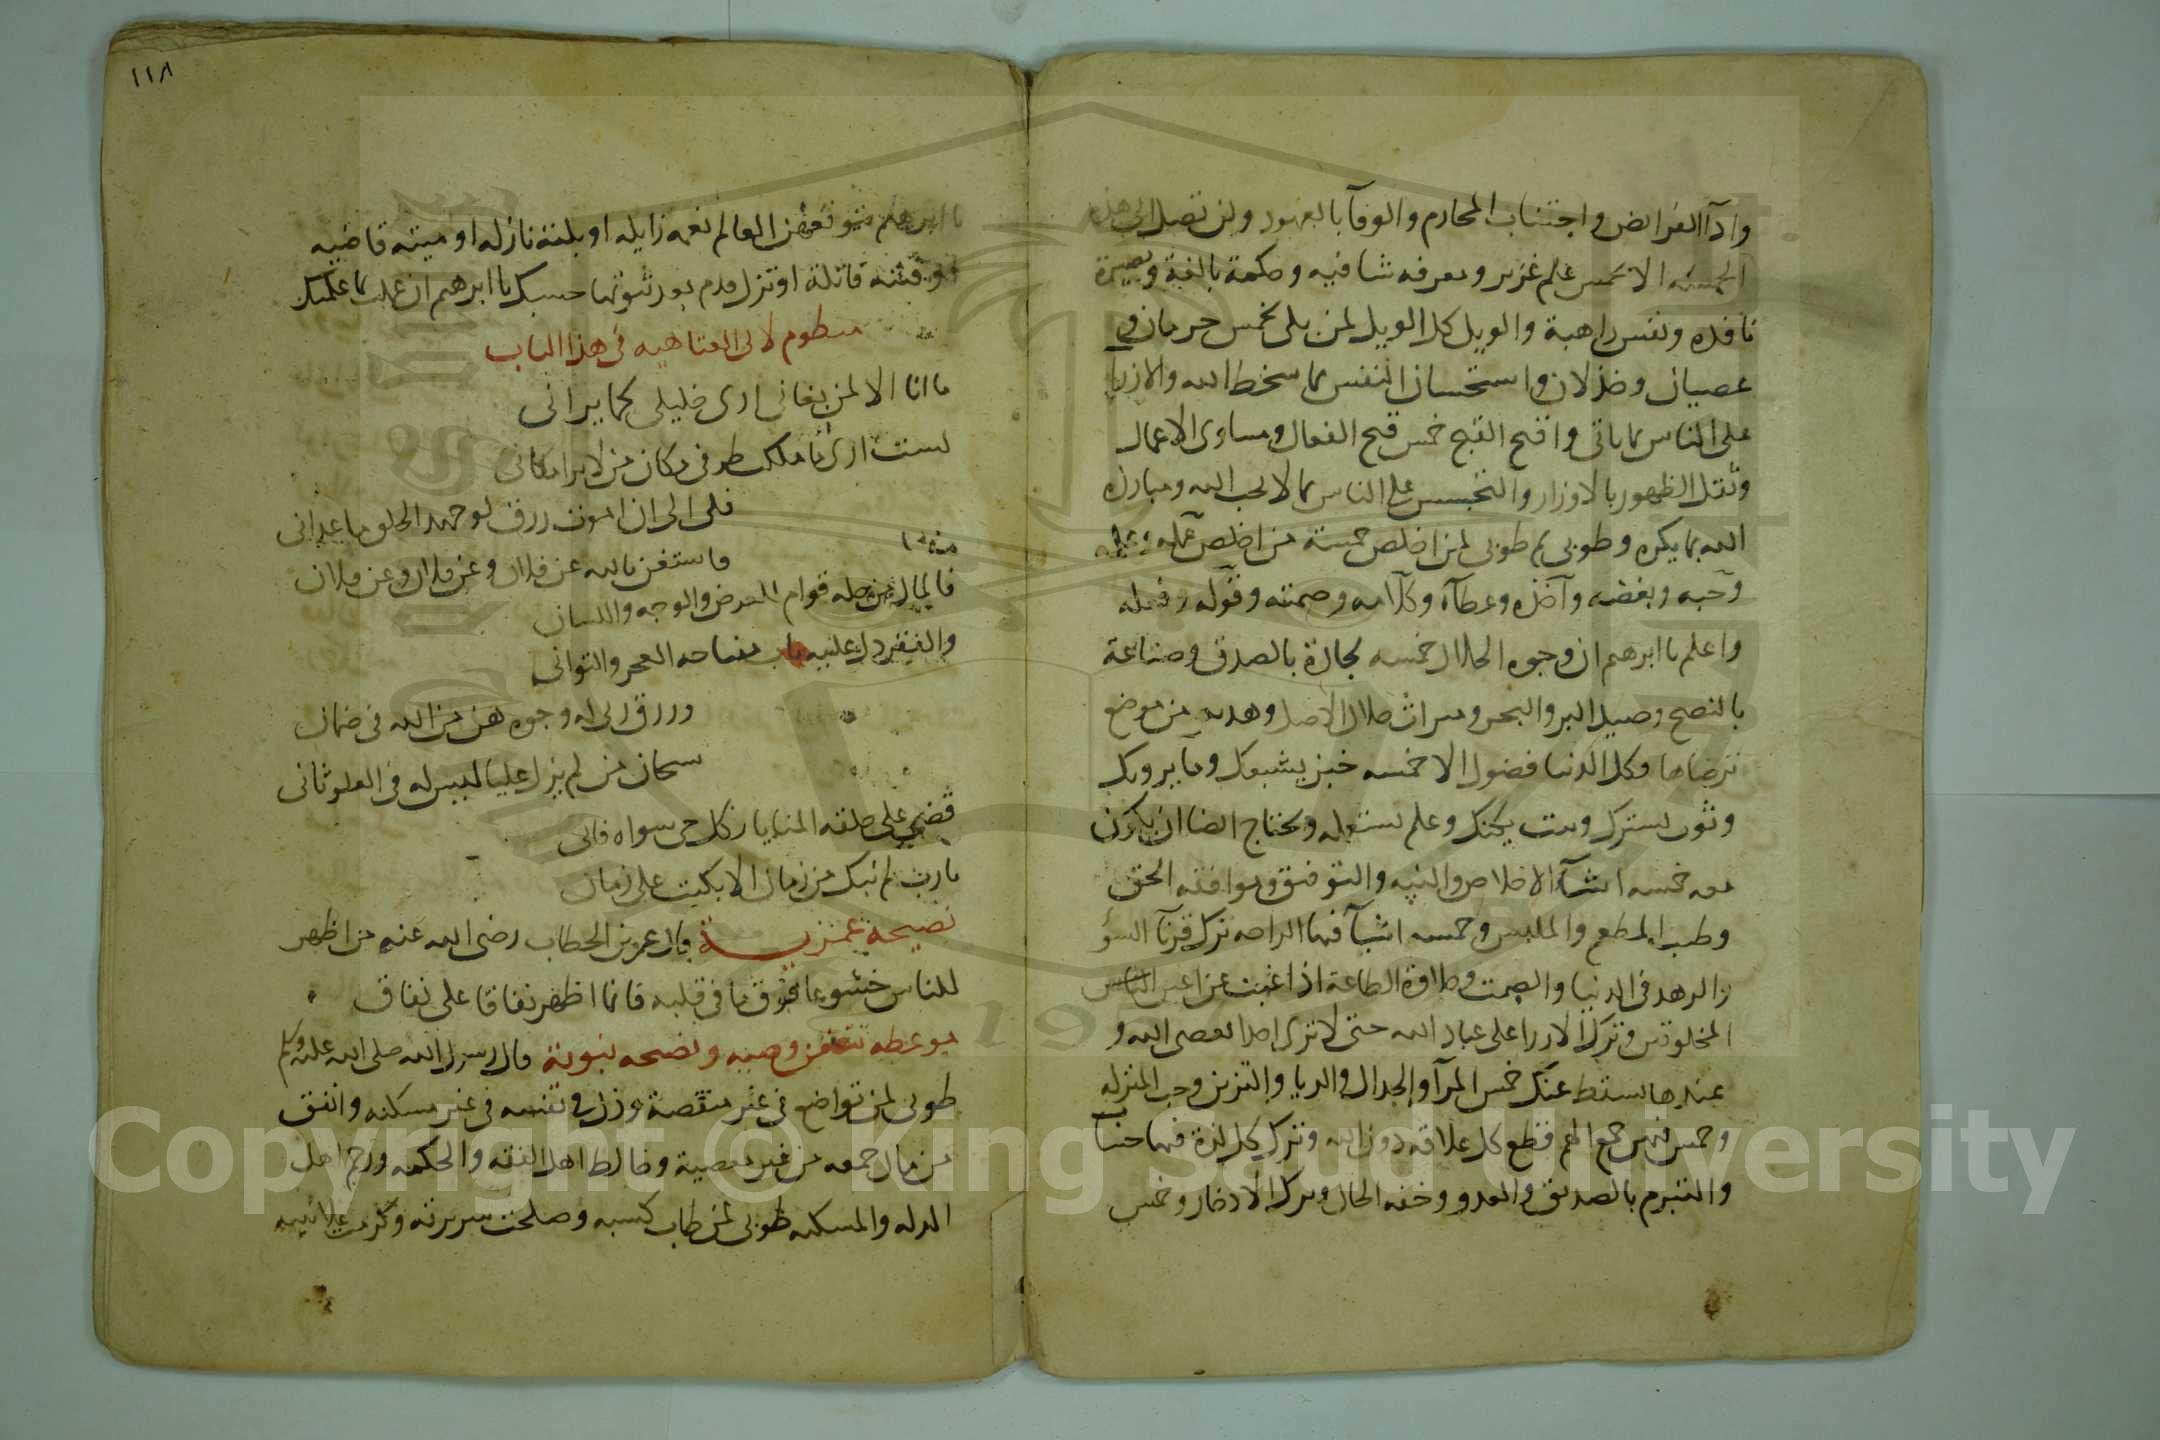 وادآ الفرايض واجتناب المحارم والوفآ بالعهود ولن تصل الى هذه
الخمسه الا بخمس علم غزير ومعرفه شافيه وحكمة بالغة وبصيرة
نافده ونفس راهبة والويل كل الويل لمن بلى بخمس حرمان و
عصيان وخذلان واستحسان النفس بما سخط الله والازرا
على الناس بما ياتي واقبح القبح خمس قبح الفعال ومساوى الاعمال
وثقل الظهور بالاوزار والتجسس على الناس بما لا يحب الله ومبارزة
الله بما يكره وطوبى ثم طوبى لمن اخلص خمسة من اخلص عمله وعلمه
وحبه وبغضه وآخذه وعطآه وكلآمه وصمته وقوله وفعله
واعلم يا ابرهيم ان وجوه الحلال خمسه تجارة بالصدق وصناعة
بالنصح وصيد البر والبحر وميراث حلال الاصل وهديه من موضع
ترضاها وكل الدنيا فضول الا خمسه خبز يشبعك ومآ يرويك
وثوب يسترك وبيت يكنك وعلم تستعمله وتحتاج ايضا ان يكون
معه خمسه اشيآ الاخلاص والنيه والتوفيق وموافقه الحق
وطيب المطعم والملبس وخمسه اشيآ فيها الراحه ترك قرنآ السؤ
والزهد في الدنيا والصمت وحلاوة الطاعة اذا غبت عن اعين الناس
المخلوقين وترك الازرا على عباد الله حتى لا تزرى احدا يعصى الله و
عندها يسقط عنك خمس المرآ والجدال والريا والتزين وحب المنزله
وخمس فيهن جمع الهم قطع كل علاقه دون الله وترك كل لذة فيها حساب
والتبرم بالصديق والعدو وخفه الحال وترك الادخار وخمس
١١٨
يا ابرهيم يتوقعهن العالم نعمه زايله او بلية نازله او ميته قاضيه
او فتنه قاتلة او تزل قدم بعد ثبوتها حسبك يا ابرهيم ان عملت بما علمتك
منظوم لابى العتاهيه فى هذا الباب
ما انا الا لمن بغانى ارى خليلى كما يرانى
لست ارى ما ملكت طرفى مكان من لا يرا مكانى
فلى الى ان اموت رزق لو جهد الخلق ما عدانى
فاستغن بالله عن فلان وعن فلان وعن فلان
منه
فالمال من حله قوام للعرض والوجه واللسان
والفقر ذل عليه باب مفتاحه العجز والتوانى
ورزق ربى له وجوه هن من الله فى ضمان
سبحان من لم يزل عليا ليس له فى العلو ثانى
قضى على خلقه المنايا فكل حى سواه فانى
يا رب لم نبك من زمان الا بكيت على زمان
نصيحة عمرية قال عمر بن الخطاب رضى الله عنه من اظهر
للناس خشوعا فوق ما فى قلبه فانما اظهر نفاقا على نفاق
موعظه تتضمن وصيه ونصيحه نبوية قال رسول الله صلى الله عليه وسلم
طوبى لمن تواضع فى غير منقصة وذل فى نفسه فى غير مسكنه وانفق
من مال جمعه من غير معصية وخالط اهل الفقه والحكمه ورحم اهل
الذله والمسكنه طوبى لمن طاب كسبه وصلحت سريرته وكرمت علانيته
Copyright © King Saud University
1957